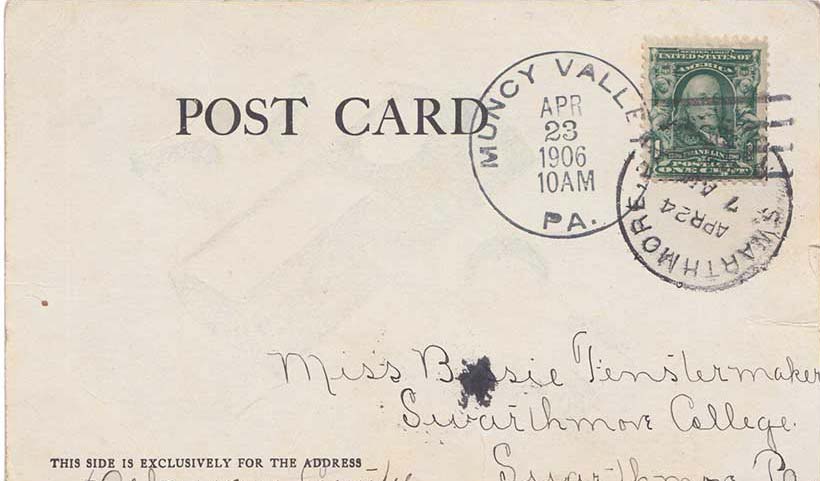 POST CARD
MUNCY VALLEY
APR
23
1906
10AM
PA.
UNITED STATES OF
AMERICA
FRANKLIN
POSTAGE
ONE CENT
SWARTHMORE
APR 24
7 AM
Miss Bessie Fenstermaker
Swarthmore College
THIS SIDE IS EXCLUSIVELY FOR THE ADDRESS
Swarthmore Pa